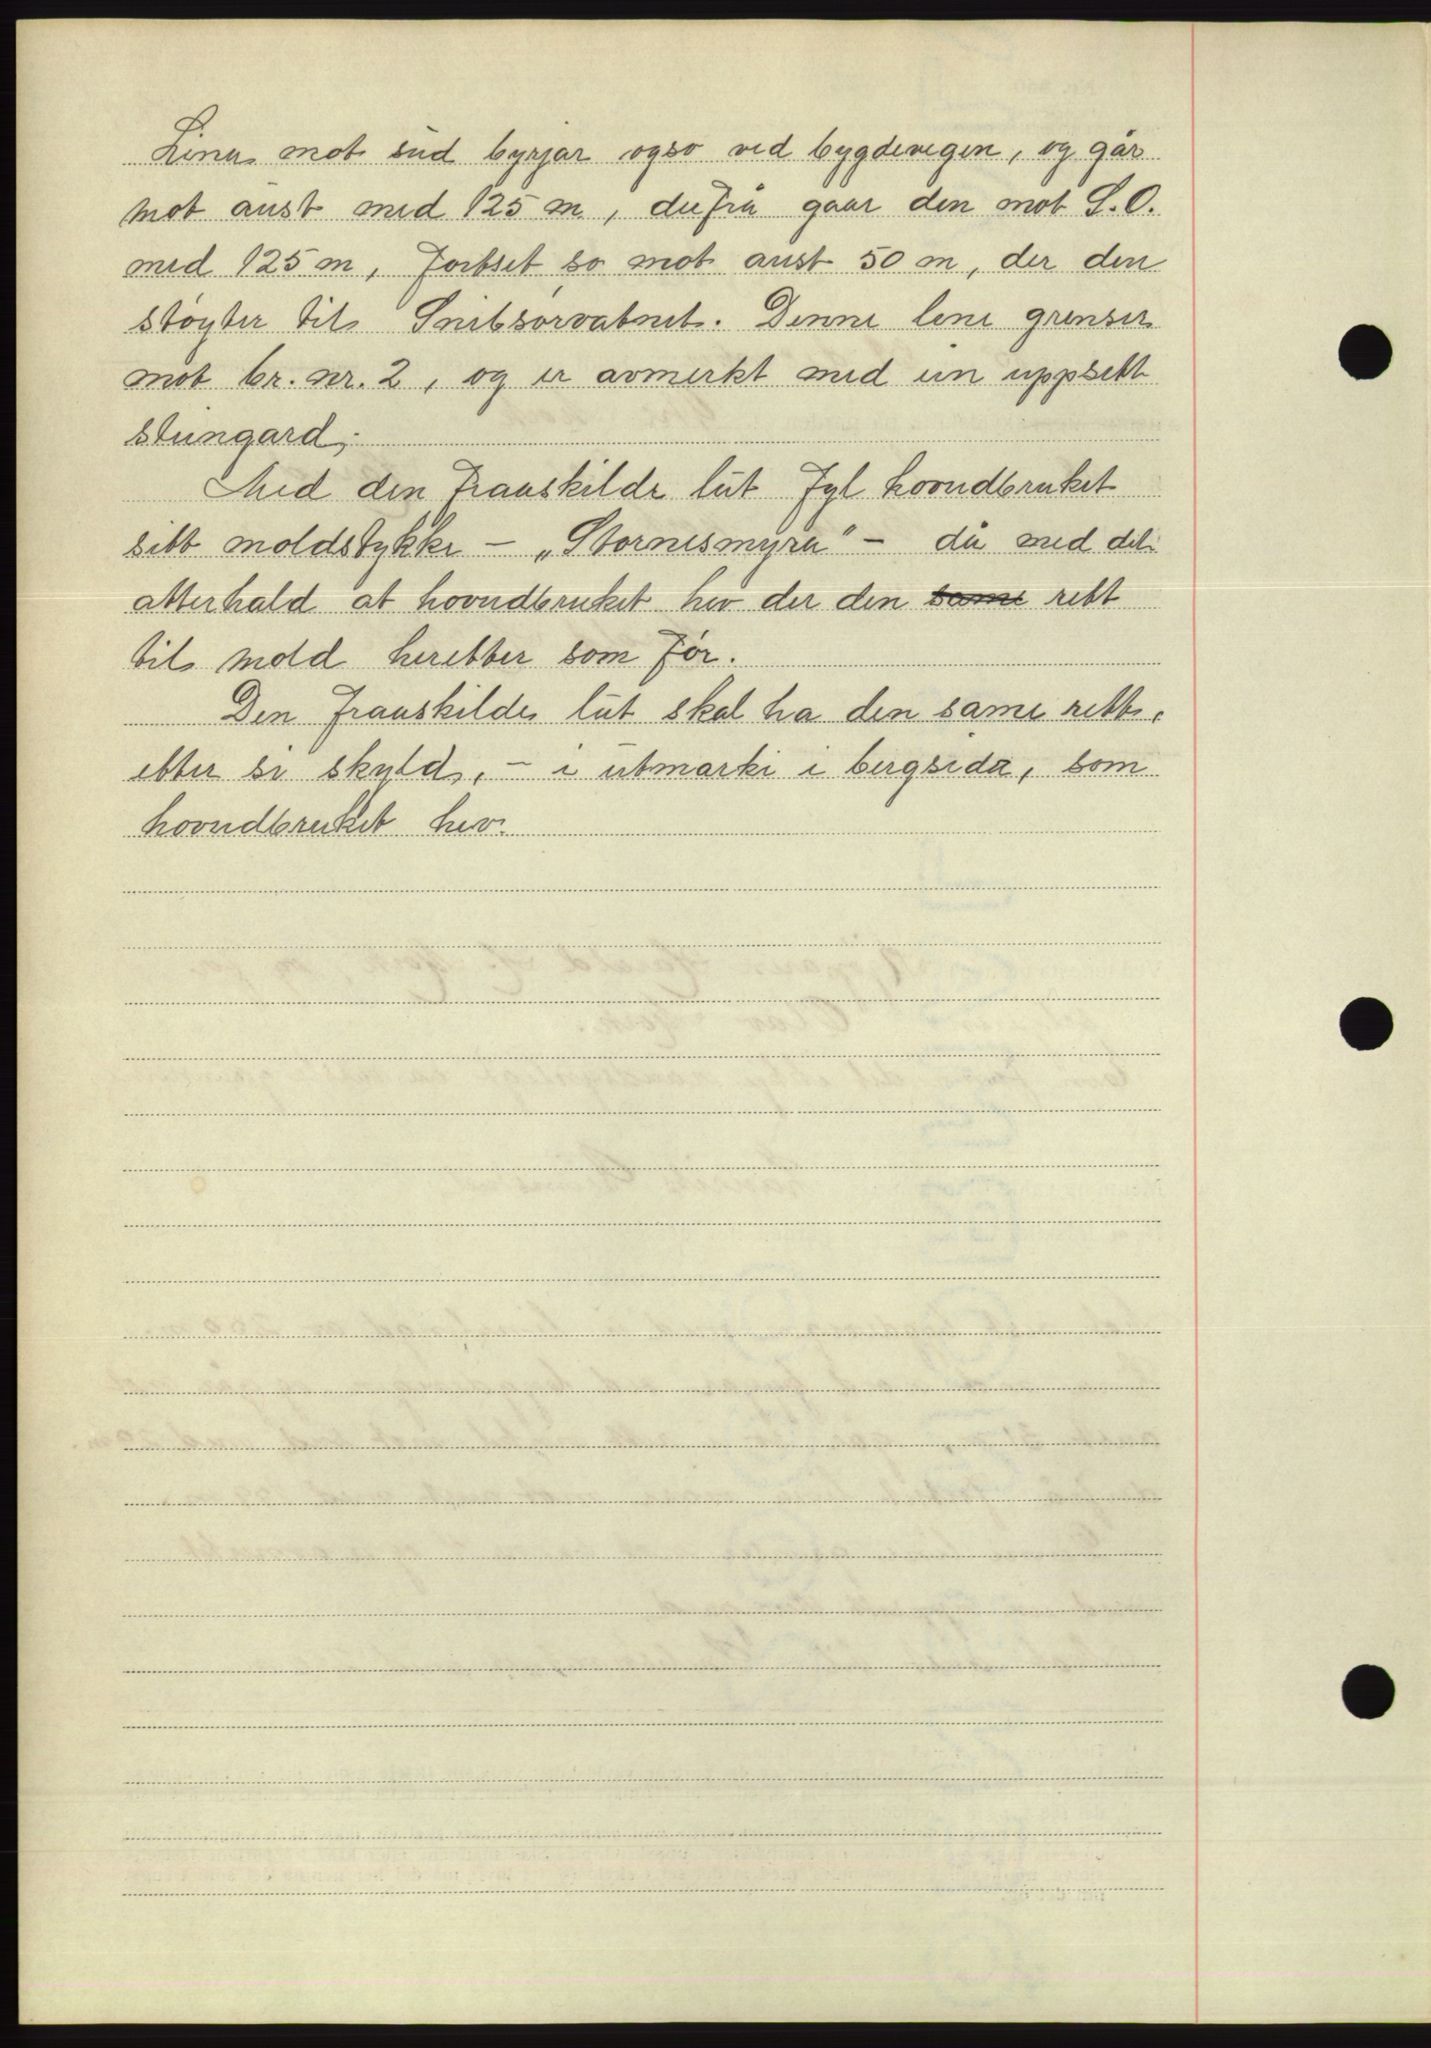 Lina mot sud byrjar ogso ved bygdevegen, og går
mot aust med 125 m, derfrå gaar den mot S.O.
med 125 m, fortset so mot aust 50 m, der den
støyter til Snitsørvatnet. Denne line grenser
mot br. nr. 2, og er avmerkt med ein uppsett
steingard;
Med den fraaskilde lut fyl hovudbruket
sitt moldstykke – „Stornesmyra" – då med det
atterhald at hovudbruket hev der den same rett
til mold heretter som før.
Den fraaskilde lut skal ha den same rett,
etter si skyld, – i utmarki i bergsida, som
hovudbruket hev.